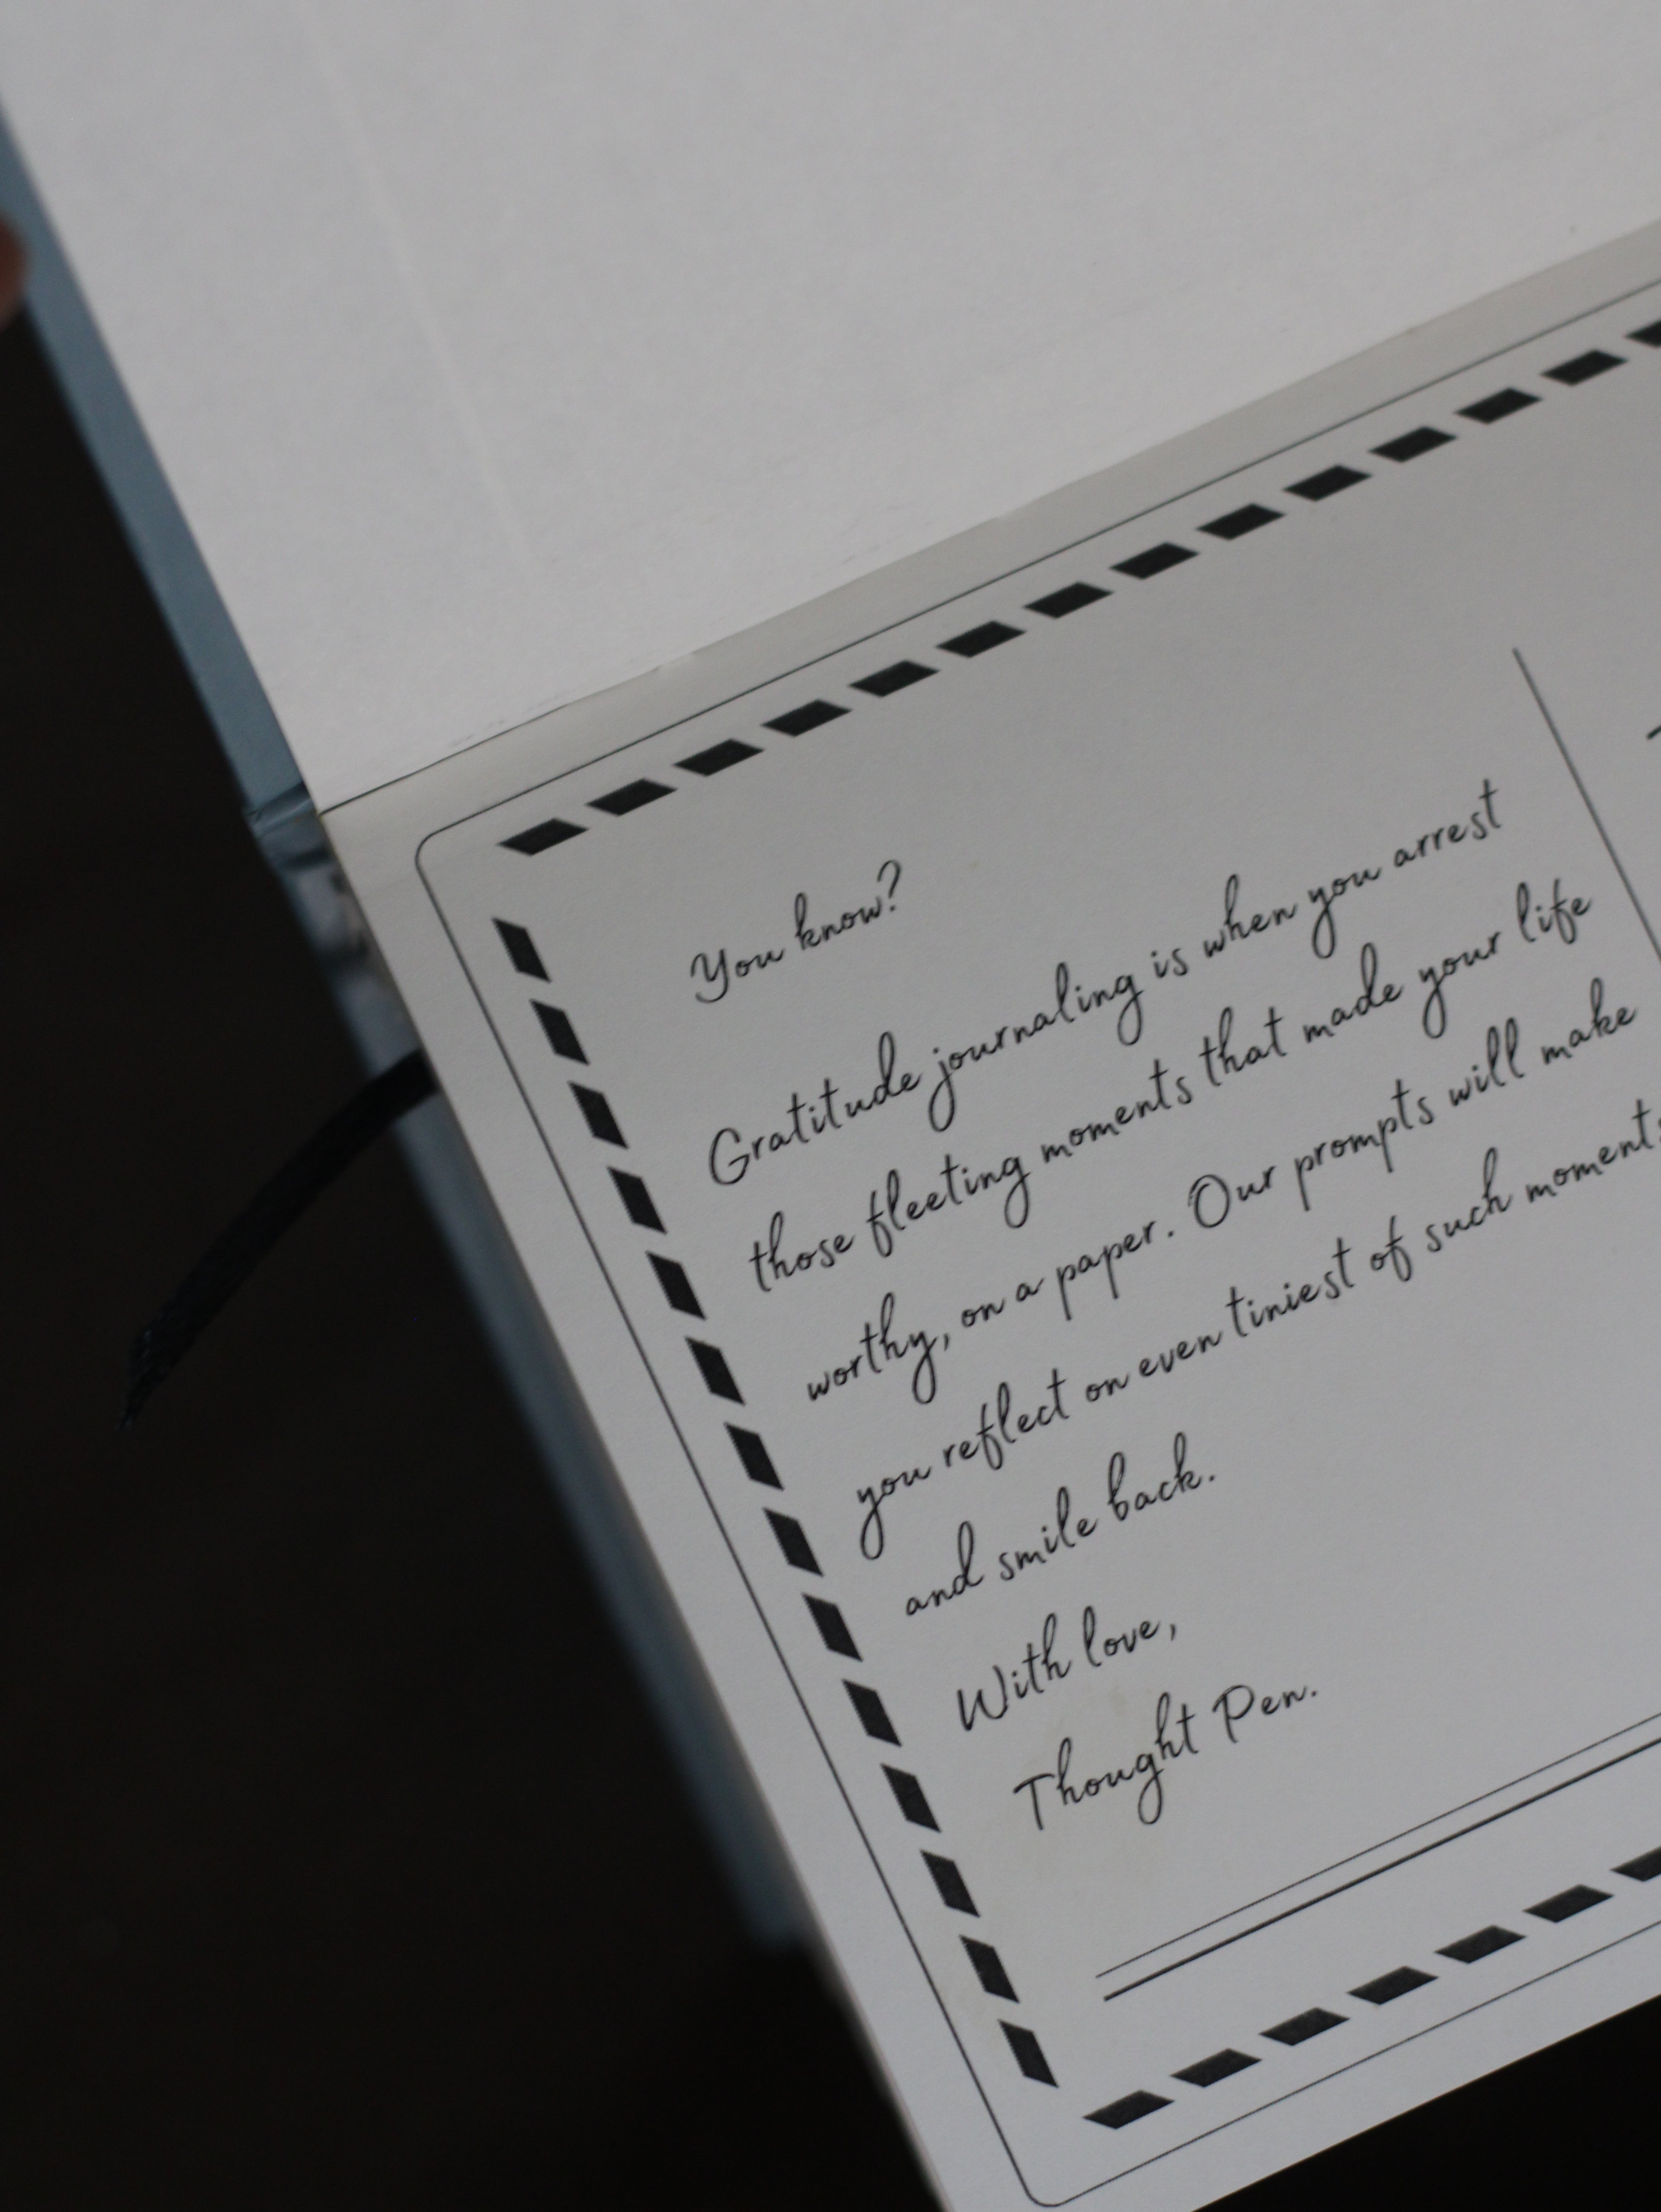 You know?
Gratitude journaling is when you arrest
those fleeting moments that made your life
worthy, on a paper. Our prompts will make
you reflect on even tiniest of such moments
and smile back.
With love,
Thought Pen.